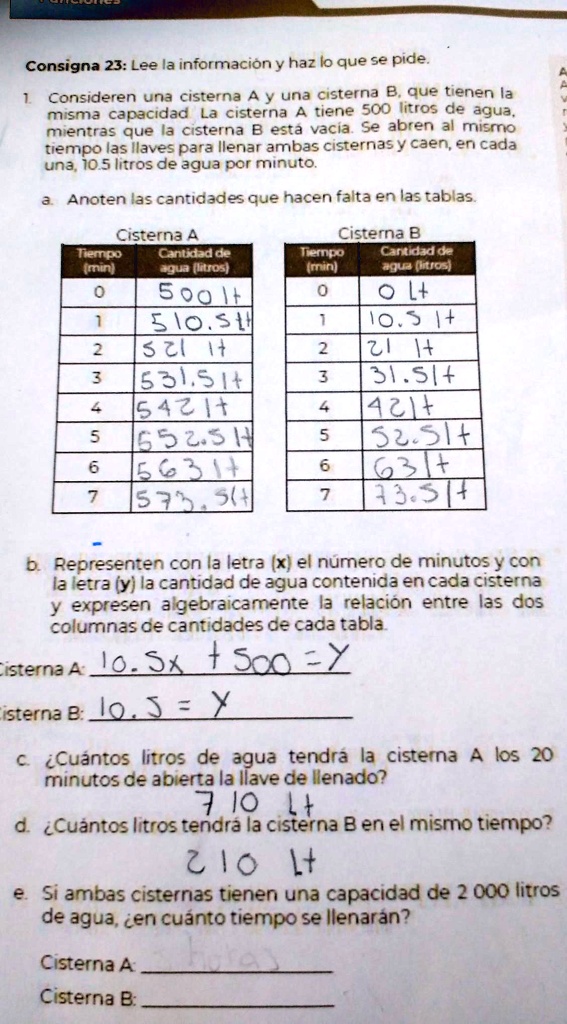 Consigna 23: Lee la información y haz lo que se pide.
1. Consideren una cisterna A y una cisterna B, que tienen la
misma capacidad. La cisterna A tiene 500 litros de agua,
mientras que la cisterna B está vacía. Se abren al mismo
tiempo las llaves para llenar ambas cisternas y caen, en cada
una, 10.5 litros de agua por minuto.
a. Anoten las cantidades que hacen falta en las tablas.
Cisterna A Cisterna B
Tiempo (min) Cantidad de agua (litros) Tiempo (min) Cantidad de agua (litros)
0 500 lt 0 0 Lt
1 510.5 lt 1 10.5 lt
2 521 lt 2 21 lt
3 531.5 lt 3 31.5 lt
4 542 lt 4 42 lt
5 552.5 lt 5 52.5 lt
6 563 lt 6 63 lt
7 573.5 lt 7 73.5 lt
b. Representen con la letra (x) el número de minutos y con
la letra (y) la cantidad de agua contenida en cada cisterna
y expresen algebraicamente la relación entre las dos
columnas de cantidades de cada tabla.
Cisterna A: 10.5x + 500 = y
Cisterna B: 10.5 = y
c. ¿Cuántos litros de agua tendrá la cisterna A los 20
minutos de abierta la llave de llenado?
710 Lt
d. ¿Cuántos litros tendrá la cisterna B en el mismo tiempo?
210 Lt
e. Si ambas cisternas tienen una capacidad de 2 000 litros
de agua, ¿en cuánto tiempo se llenarán?
Cisterna A: horas
Cisterna B: